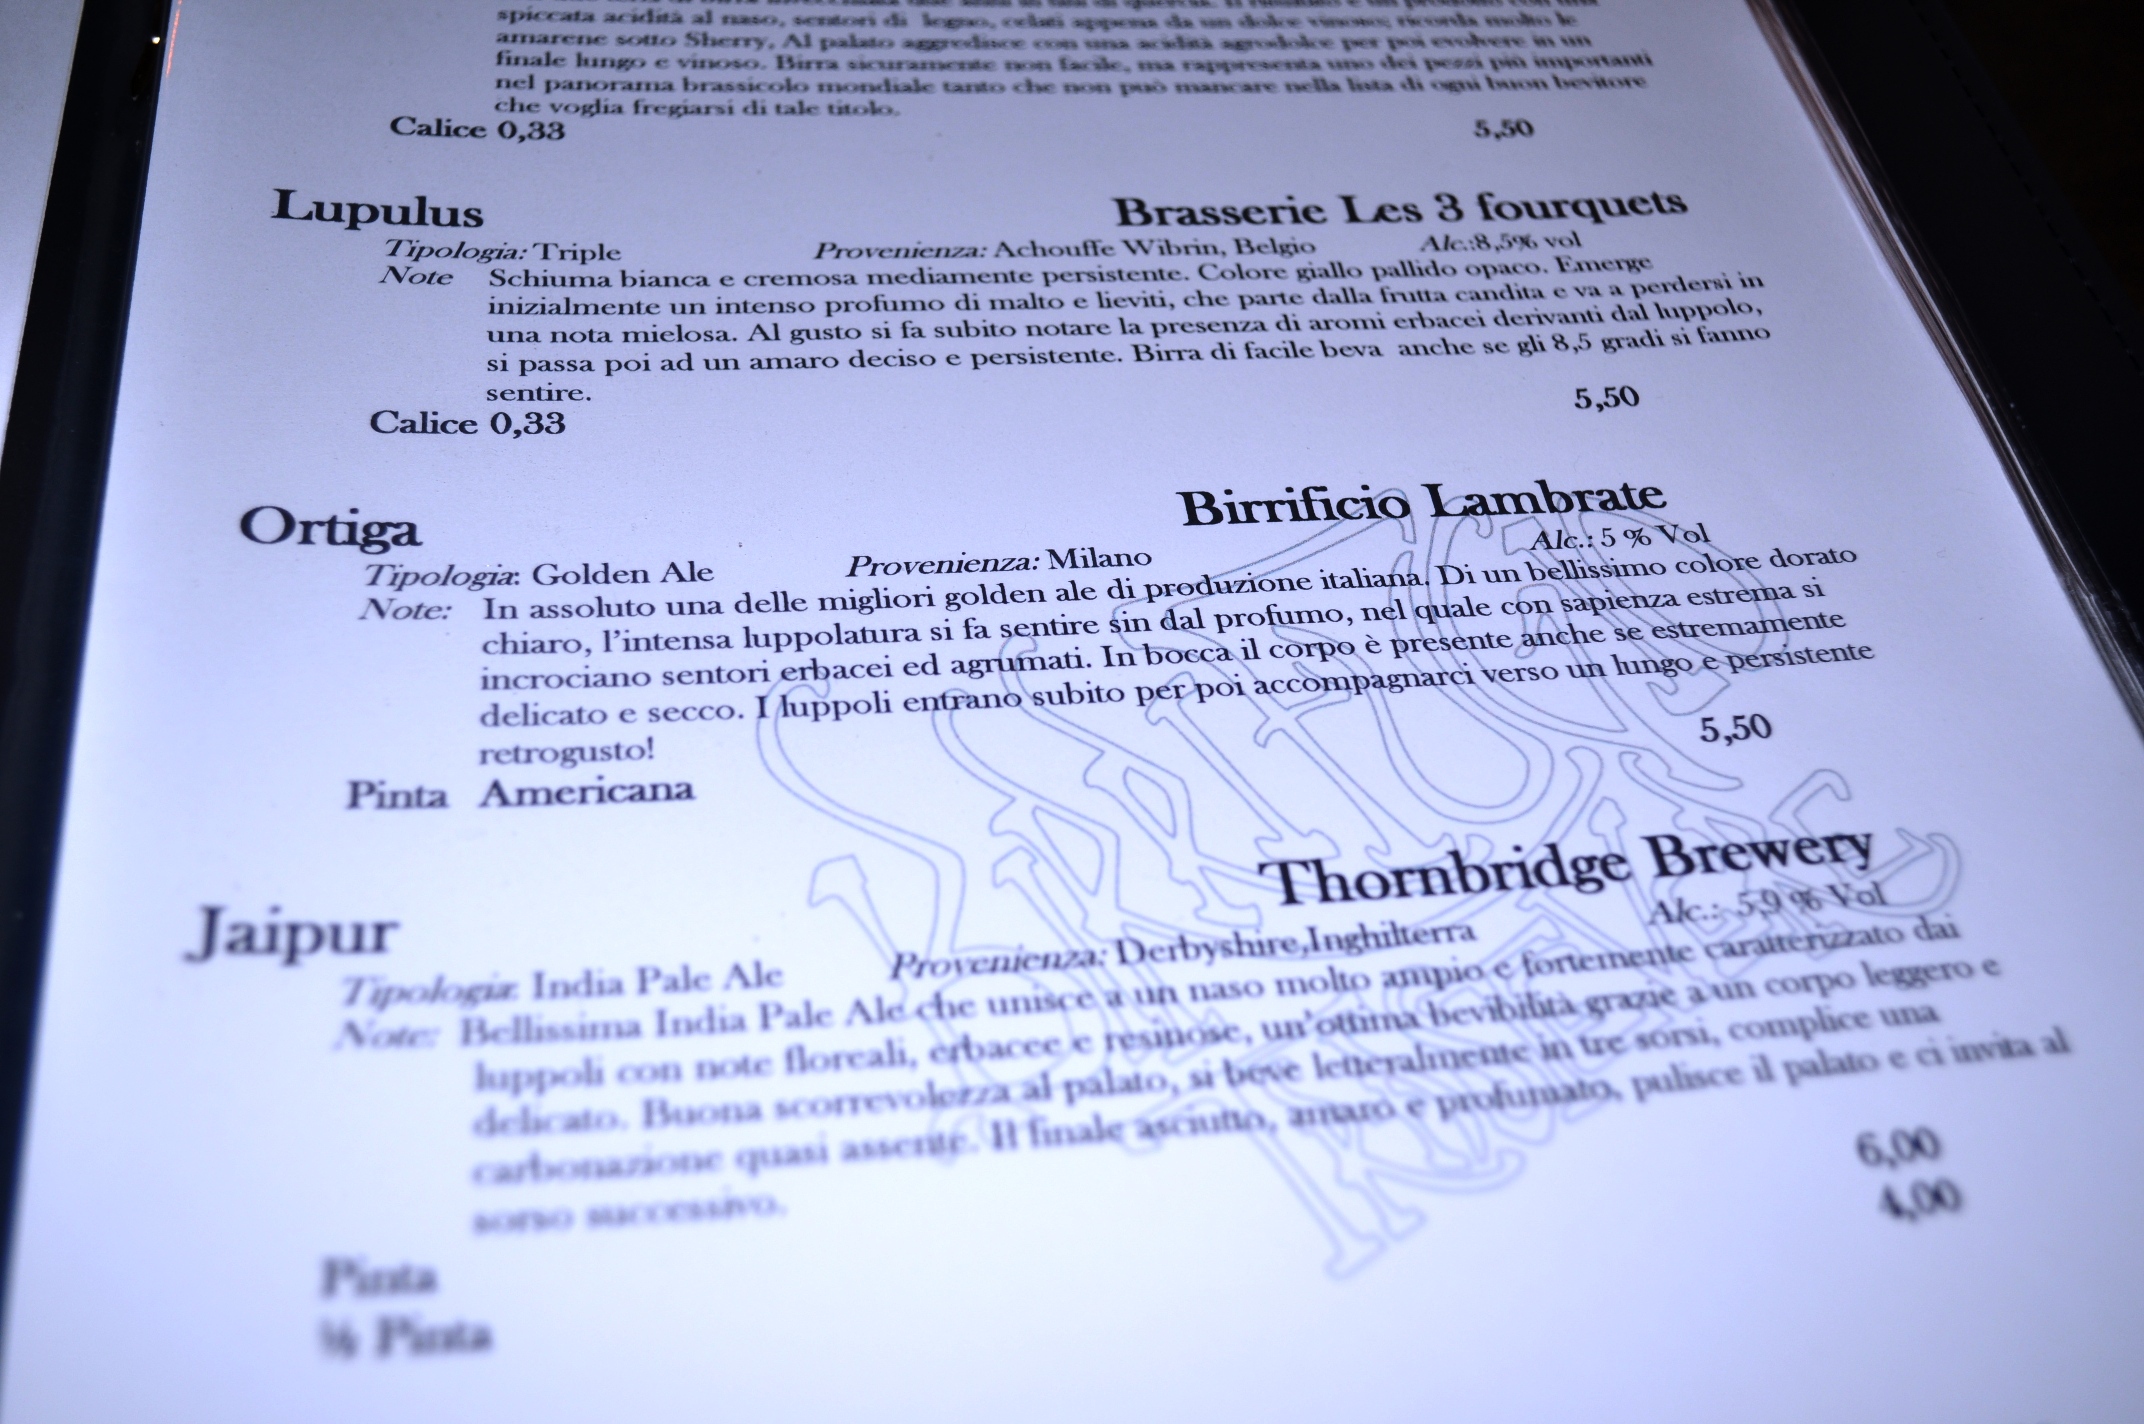 spiccata acidità al naso, sentori di legno, celati appena da un dolce vinoso; ricorda molto le
amarene sotto Sherry. Al palato aggredisce con una acidità agrodolce per poi evolvere in un
finale lungo e vinoso. Birra sicuramente non facile, ma rappresenta uno dei pezzi più importanti
nel panorama brassicolo mondiale tanto che non può mancare nella lista di ogni buon bevitore
che voglia fregiarsi di tale titolo.
Calice 0,33 5,50
Lupulus Brasserie Les 3 fourquets
Tipologia: Triple Provenienza: Achouffe Wibrin, Belgio Alc.:8,5% vol
Note Schiuma bianca e cremosa mediamente persistente. Colore giallo pallido opaco. Emerge
inizialmente un intenso profumo di malto e lieviti, che parte dalla frutta candita e va a perdersi in
una nota mielosa. Al gusto si fa subito notare la presenza di aromi erbacei derivanti dal luppolo,
si passa poi ad un amaro deciso e persistente. Birra di facile beva anche se gli 8,5 gradi si fanno
sentire.
Calice 0,33 5,50
Ortiga Birrificio Lambrate
Tipologia: Golden Ale Provenienza: Milano Alc.: 5 % Vol
Note: In assoluto una delle migliori golden ale di produzione italiana. Di un bellissimo colore dorato
chiaro, l'intensa luppolatura si fa sentire sin dal profumo, nel quale con sapienza estrema si
incrociano sentori erbacei ed agrumati. In bocca il corpo è presente anche se estremamente
delicato e secco. I luppoli entrano subito per poi accompagnarci verso un lungo e persistente
retrogusto!
Pinta Americana 5,50
Jaipur Thornbridge Brewery
Tipologia: India Pale Ale Provenienza: Derbyshire,Inghilterra Alc.: 5,9 % Vol
Note: Bellissima India Pale Ale che unisce a un naso molto ampio e fortemente caratterizzato dai
luppoli con note floreali, erbacee e resinose, un'ottima bevibilità grazie a un corpo leggero e
delicato. Buona scorrevolezza al palato, si beve letteralmente in tre sorsi, complice una
carbonazione quasi assente. Il finale asciutto, amaro e profumato, pulisce il palato e ci invita al
sorso successivo.
Pinta 6,00
½ Pinta 4,00